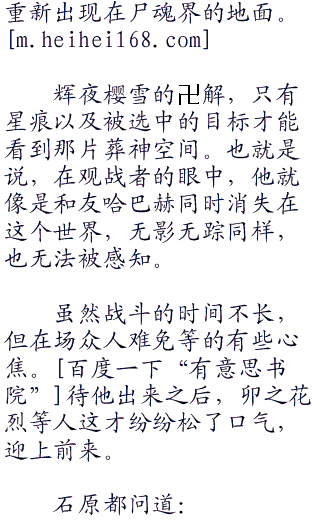 重新出现在尸魂界的地面。
[m.heihei168.com]
辉夜樱雪的卍解，只有
星痕以及被选中的目标才能
看到那片葬神空间。也就是
说，在观战者的眼中，他就
像是和友哈巴赫同时消失在
这个世界，无影无踪同样，
也无法被感知。
虽然战斗的时间不长，
但在场众人难免等的有些心
焦。[百度一下“有意思书
院”]待他出来之后，卯之花
烈等人这才纷纷松了口气，
迎上前来。
石原都问道：